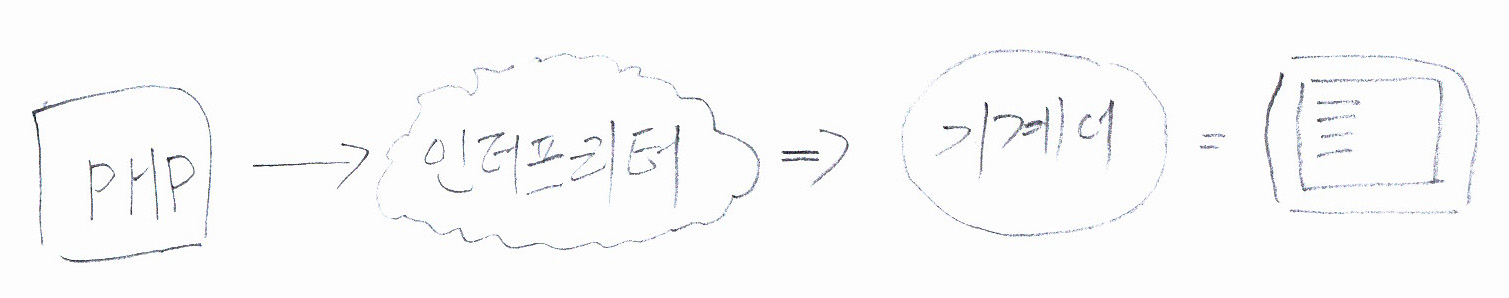 PHP
인터프리터
기계어